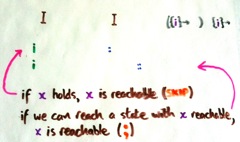 I I ({i}→ ) {i}→
i :
i ::
if x holds, x is reachable (swap)
if we can reach a state with x reachable,
x is reachable (;)